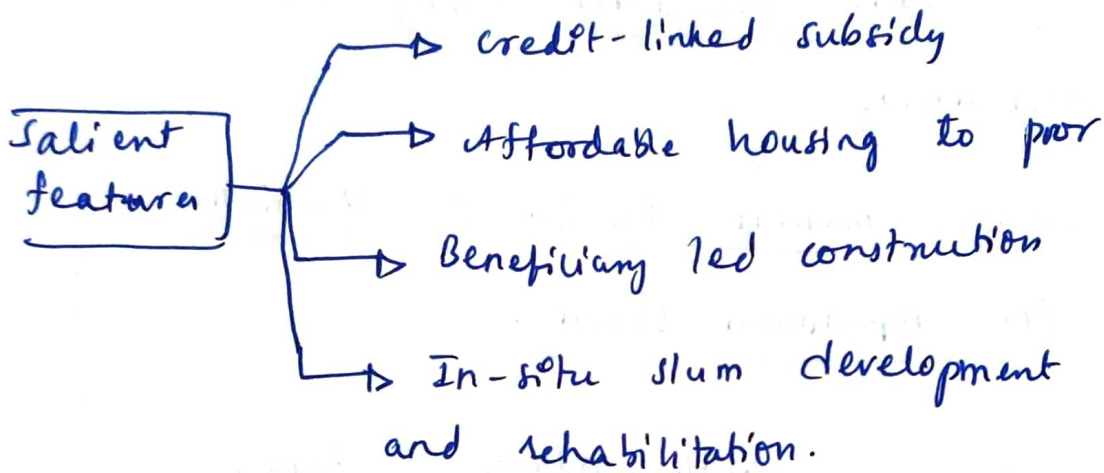 Salient
features
credit-linked subsidy
Affordable housing to poor
Beneficiary led construction
In-situ slum development
and rehabilitation.